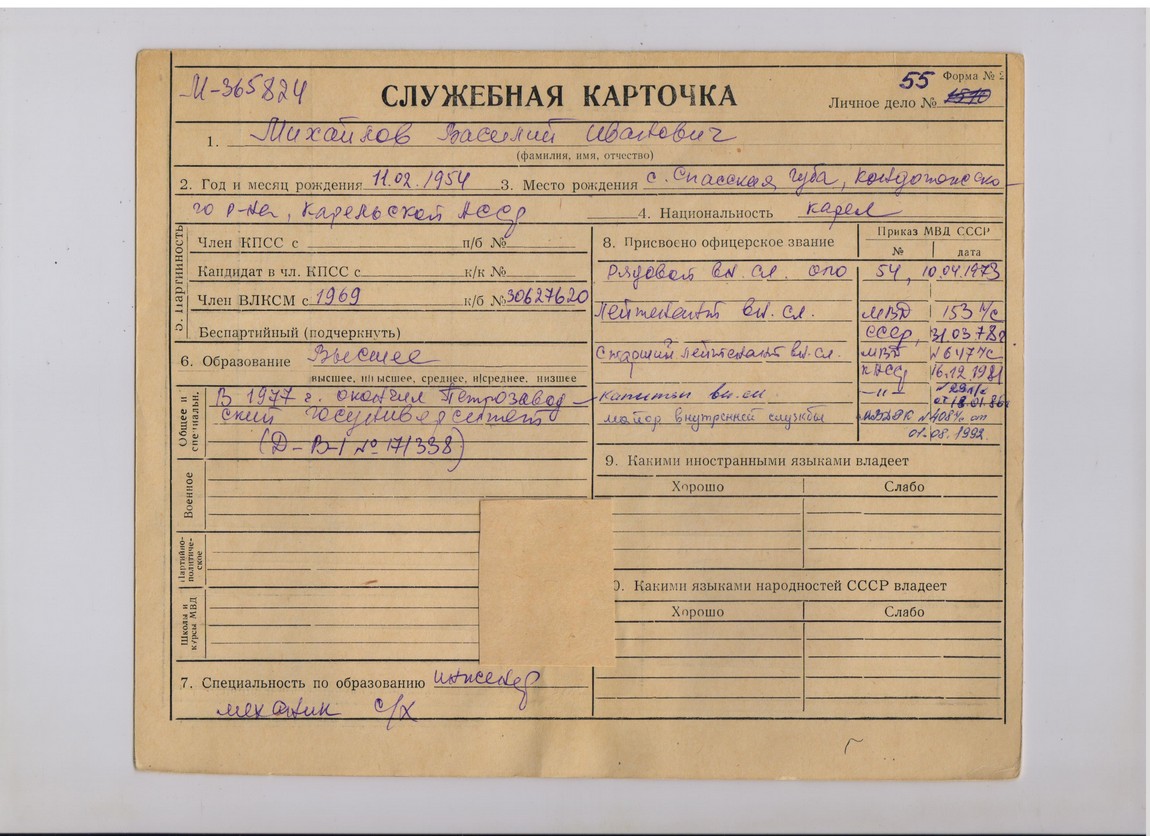 М-365824
СЛУЖЕБНАЯ КАРТОЧКА
55 Форма № 2
Личное дело №
1. Михайлов Василий Иванович
(фамилия, имя, отчество)
2. Год и месяц рождения 11.02.1954 3. Место рождения с. Спасская губа, Кондопожско-
го р-на, Карельской АССР 4. Национальность карел
5. Партийность
Член КПСС с п/б №
Кандидат в чл. КПСС с к/к №
Член ВЛКСМ с 1969 к/б № 30627620
Беспартийный (подчеркнуть)
6. Образование Высшее
высшее, н/высшее, среднее, н/среднее, низшее
Общее и специальн.
В 1977 г. окончил Петрозавод-
ский госуниверситет
(Д-В-I № 171338)
Военное
Партийно-политическое
Школы и курсы МВД
7. Специальность по образованию инженер
механик с/х
8. Присвоено офицерское звание
Приказ МВД СССР
№ дата
Рядовой вн. сл. 54, 10.04.1973
Лейтенант вн. сл. МВД 153 л/с
СССР, 31.03.78г
Старший лейтенант вн. сл. МВД №647 л/с
КАССР 16.12.1981
капитан вн. сл. —"— № 291 л/с
от 18.01.86г
майор внутренней службы от
01.08.1992.
9. Какими иностранными языками владеет
Хорошо Слабо
0. Какими языками народностей СССР владеет
Хорошо Слабо